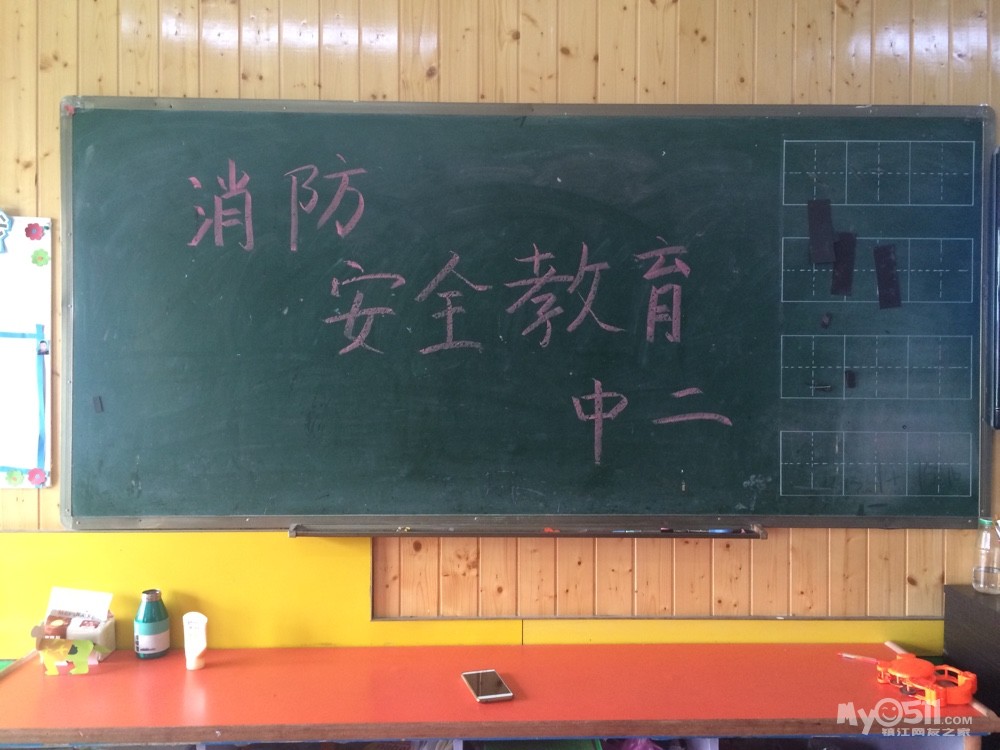 消防
安全教育
中二
My0511.COM
镇江网友之家